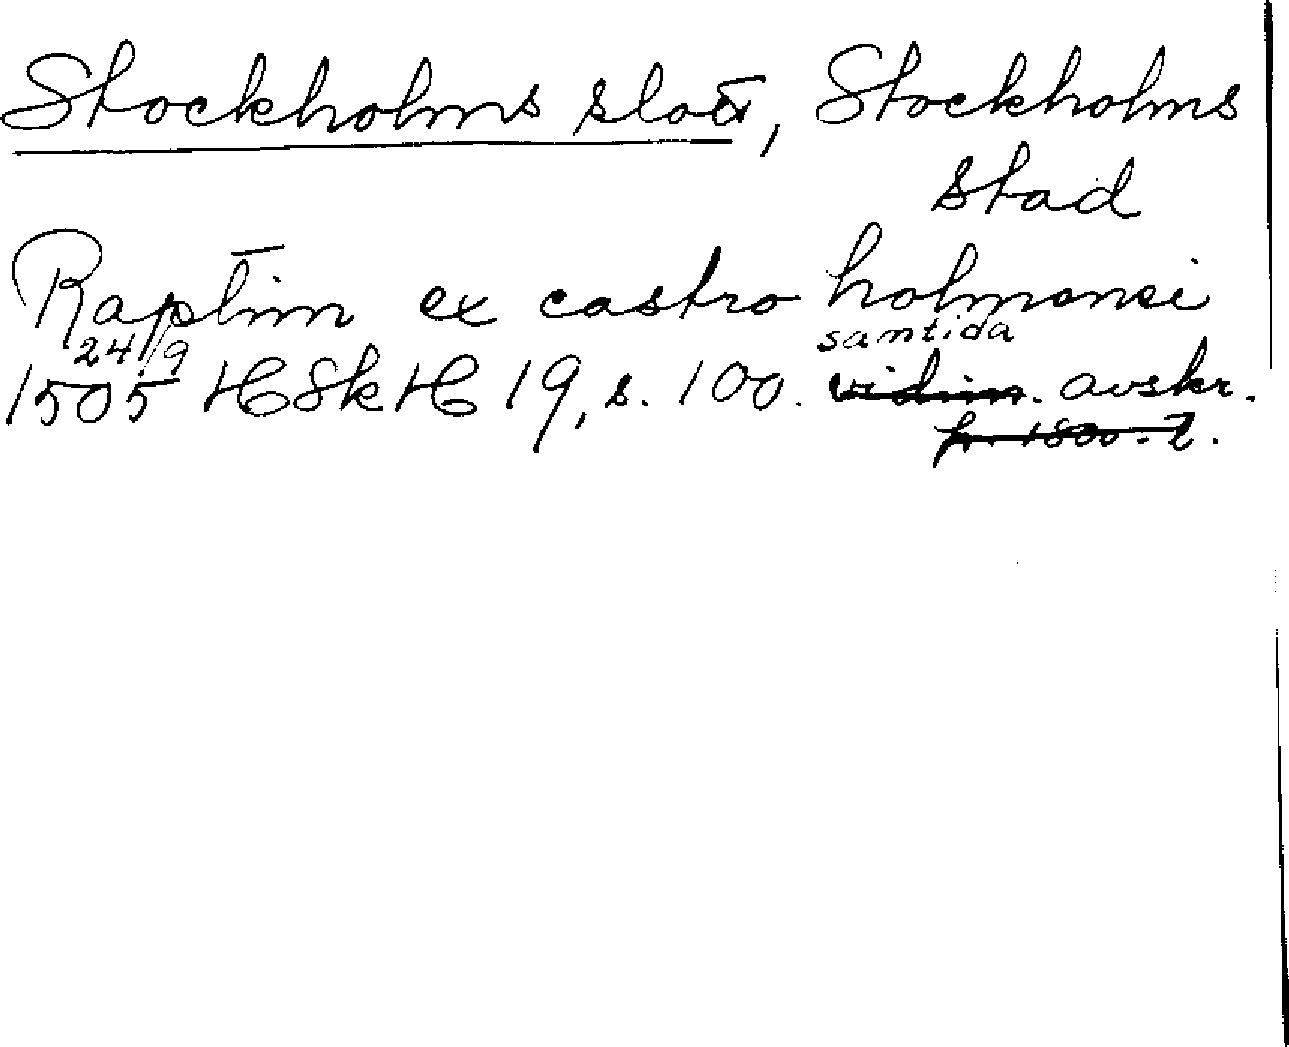 Stockholms slott, Stockholms
stad
Raptim ex castro holmensi
24/9 samtida
1505 HSkH 19, s. 100. vidim. avskr.
fr. 1800-t.